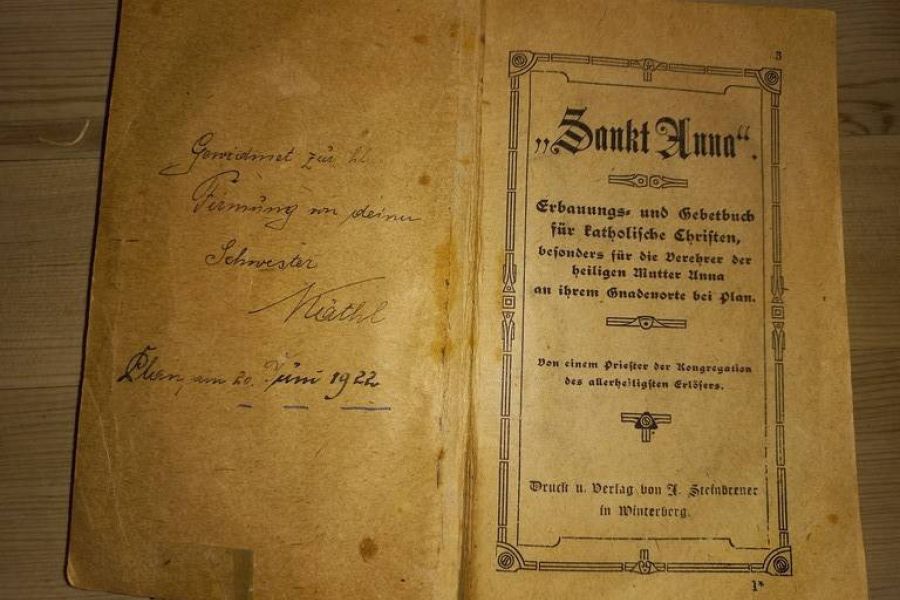 Gewidmet zur hl.
Firmung von deiner
Schwester
Käthl
Plan, am 20. Juni 1922
3
„Sankt Anna“.
Erbauungs- und Gebetbuch
für katholische Christen,
besonders für die Verehrer der
heiligen Mutter Anna
an ihrem Gnadenorte bei Plan.
Von einem Priester der Kongregation
des allerheiligsten Erlösers.
Druck u. Verlag von J. Steinbrener
in Winterberg.
1*